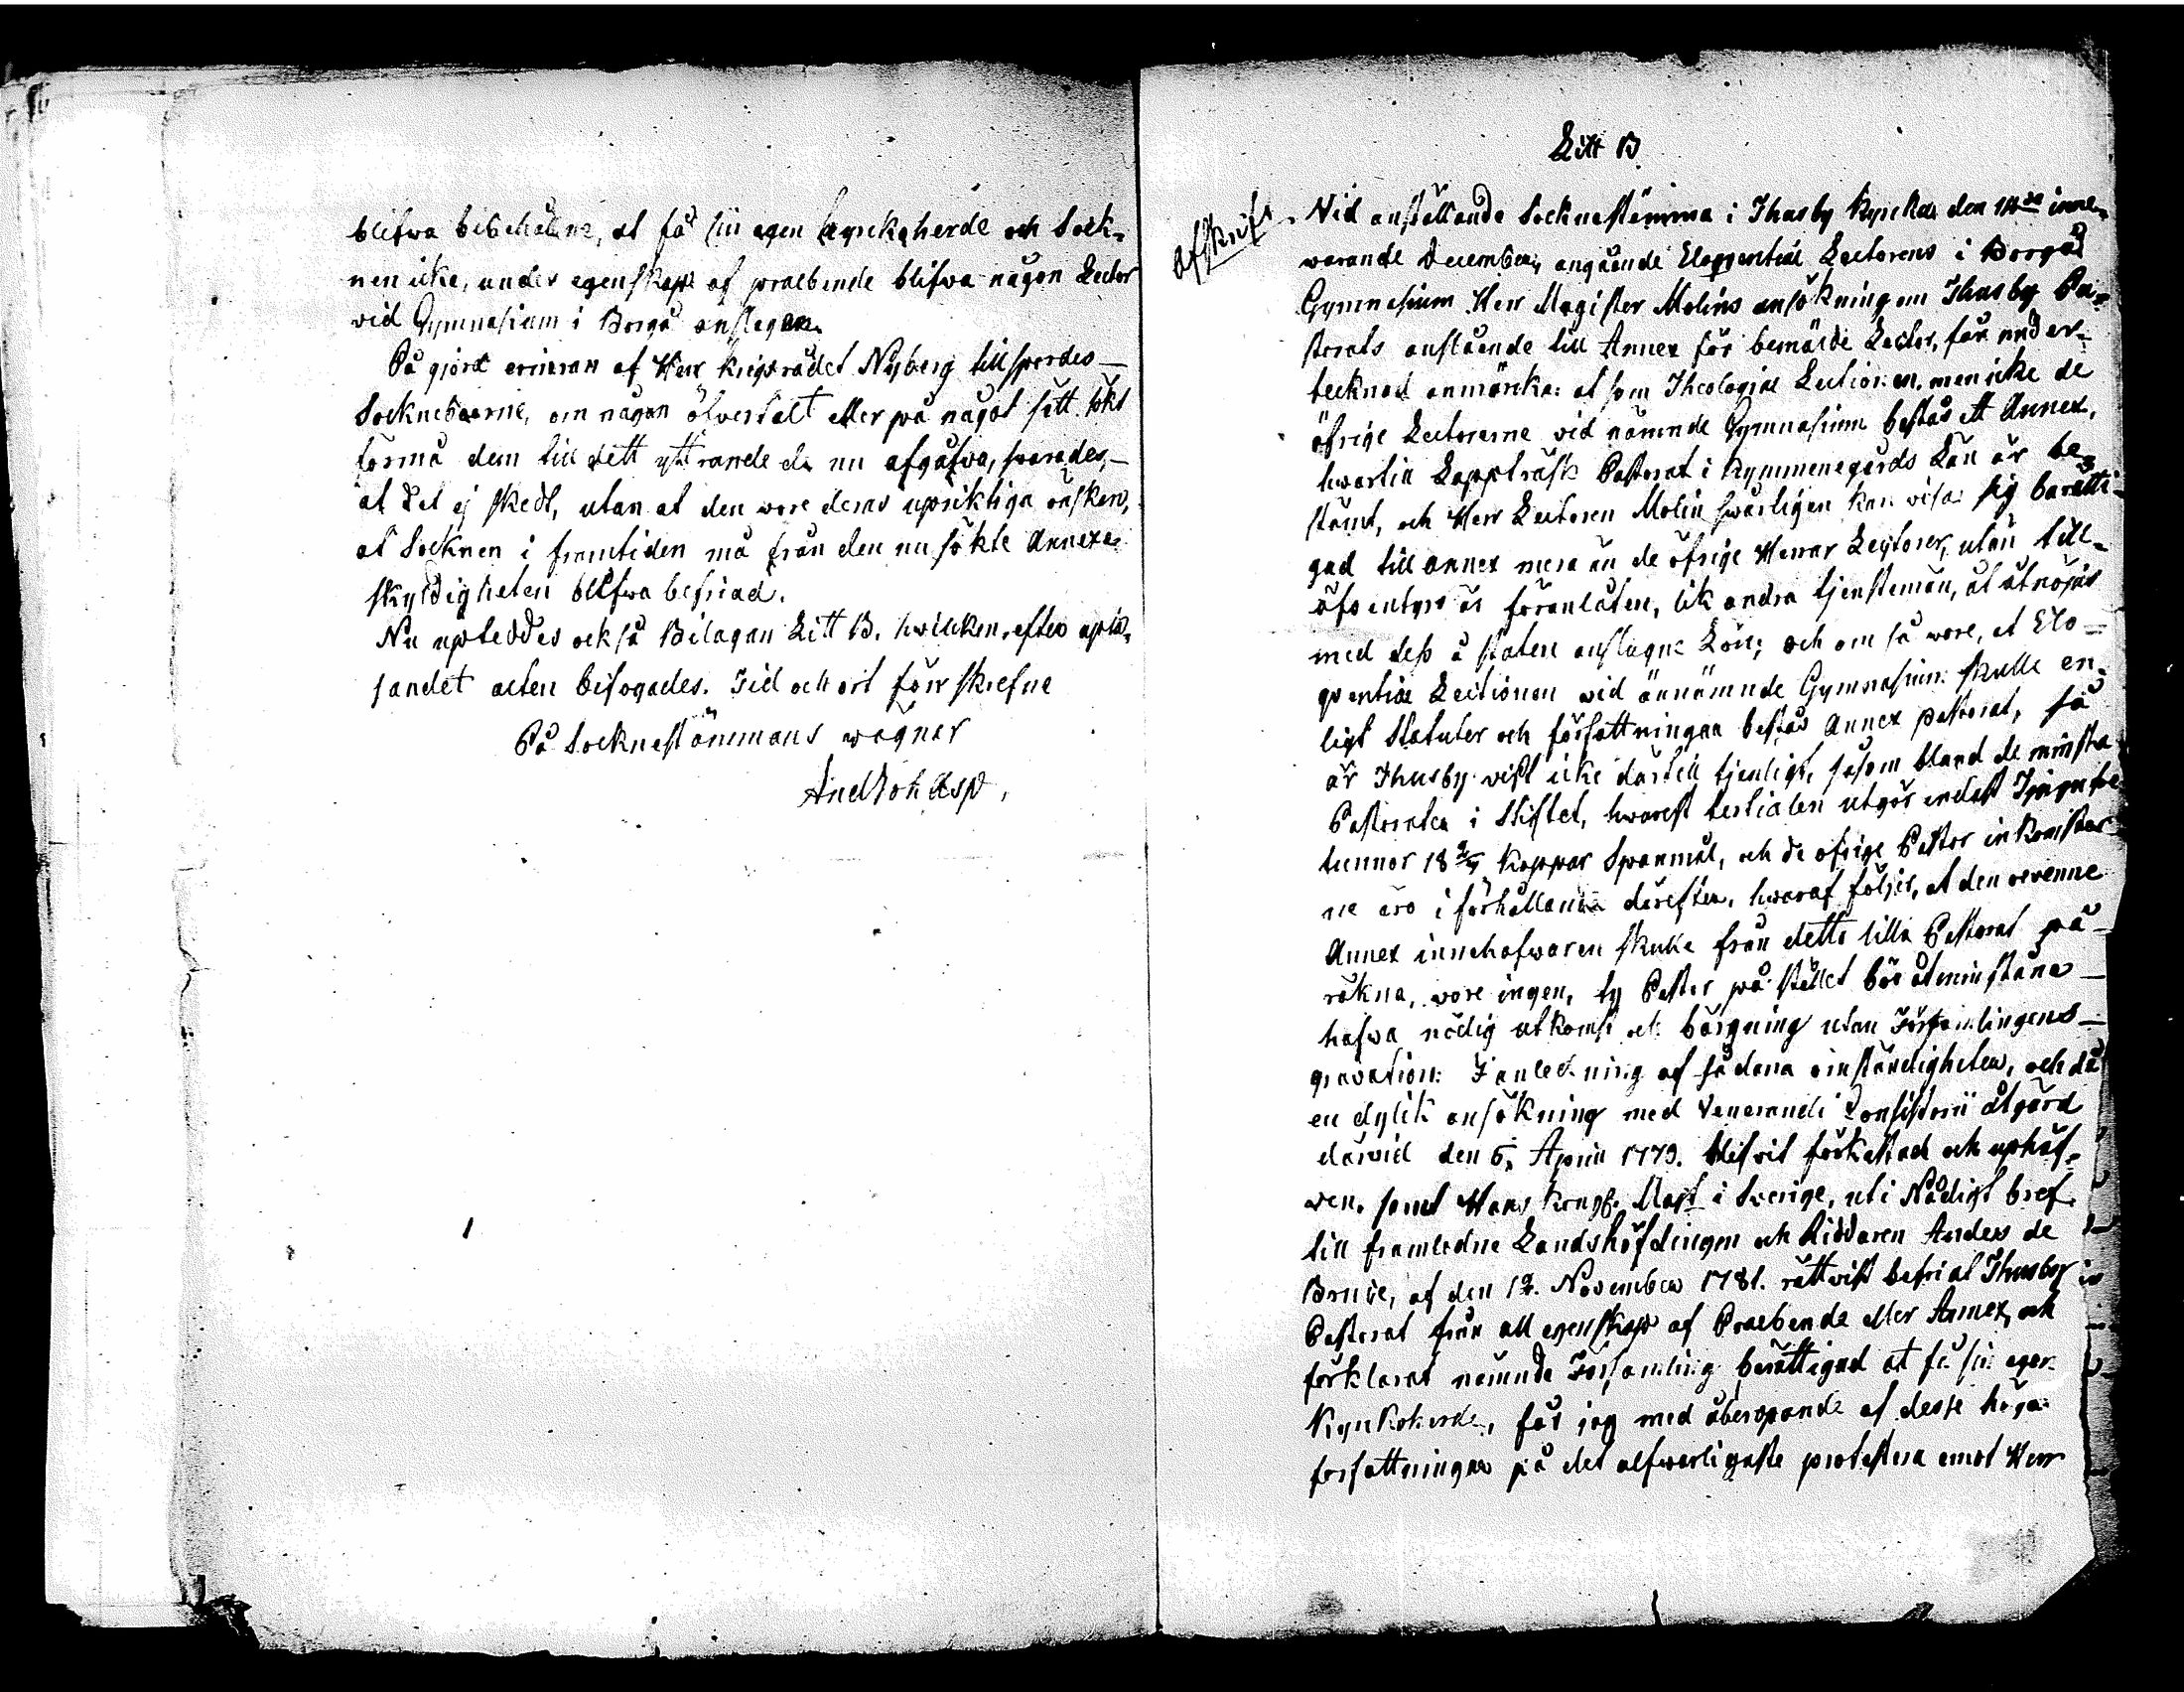 blifwa bibehållne, at få sin egen kyrckoherde och Sock-
nen icke, under egenskap af praebende blifwa någon Lector
vid Gymnasium i Borgå anslagen.
På gjord erinran af Herr Krigsrådet Nyberg tillspordes
Sockneboerne, om någon öfvertalt eller på något sätt sökt
förmå dem till dett yttrande de nu afgåfwo, svarades,
at det ej skedt, utan at den wore deras upriktiga önskan,
at Socknen i framtiden må från den nu sökte Annexe
skyldigheten blifwa befriad.
Nu upteddes också Bilagan Litt B. hwilcken, efter uplä-
sandet acten bifogades. Tid och ort förr skrefne
På Socknestämmans wägnar
And Joh Asp.
Litt B
Afskrift.
Vid anställande Socknestämma i Thusby Kyrcka den 14de inne-
warande December, angående Eloquentiae Lectorens i Borgå
Gymnasium Herr Magister Molins ansökning om Thusby Pa-
storats anslående till Annex för bemälde Lector, får under-
tecknad anmärcka: at som Theologiae Lectionen, men icke de
öfrige Lectorerne vid nämnde Gymnasium bestås ett Annex,
hwartill Lappträsk Pastorat i Kymmenegårds Län är be-
stämt, och Herr Lectoren Molin swårligen kan visa sig berätti-
gad till annex mera än de öfrige Herrar Lectorer, utan till-
äfventyrs är föranlåten, lik andra tjensteman, at åtnöjas
med dess å staten anslagne Lön; och om så wore, at Elo-
quentiae Lectionen vid ännämnde Gymnasium skulle en-
ligt Statuter och författningar bestås Annex pastorat, så
är Thusby vist icke dartill tjenligt, såsom bland de minsta
Pastoraten i Stiftet, hwarest tertialen utgör endast Tjugu tre
tunnor 18 2/4 Kappar Spanmål, och de öfrige Pastor inkomster
ne äro i förhållande därefter, hwaraf följer, at den revenne
Annex innehafwaren skulle från detta lilla Pastorat på-
räkna, wore ingen, ty Pastor på stället bör åtminstone
hafwa nödig utkomst och bärgning utan Församlingens
gravation: I anledning af sådana omständigheter, och då
en dylik ansökning med Venerandi Consistorii åtgärd
därvid den 6. April 1779. blifvit förkastad och uphäf-
ven, samt Hans Kongl. Majt i Sverige, uti Nådigt bref
till framledne Landshöfdingen och Riddaren Anders de
Bruce, af den 12. November 1781. rättvist befriat Thusby
Pastorat från all egenskap af Praebende eller Annex, och
förklarat nämnde Församling berättigad at få sin egen
Kyrkoherde, får jag med åberopande af desse höga
författningar på det alfwarligaste protestera emot Herr